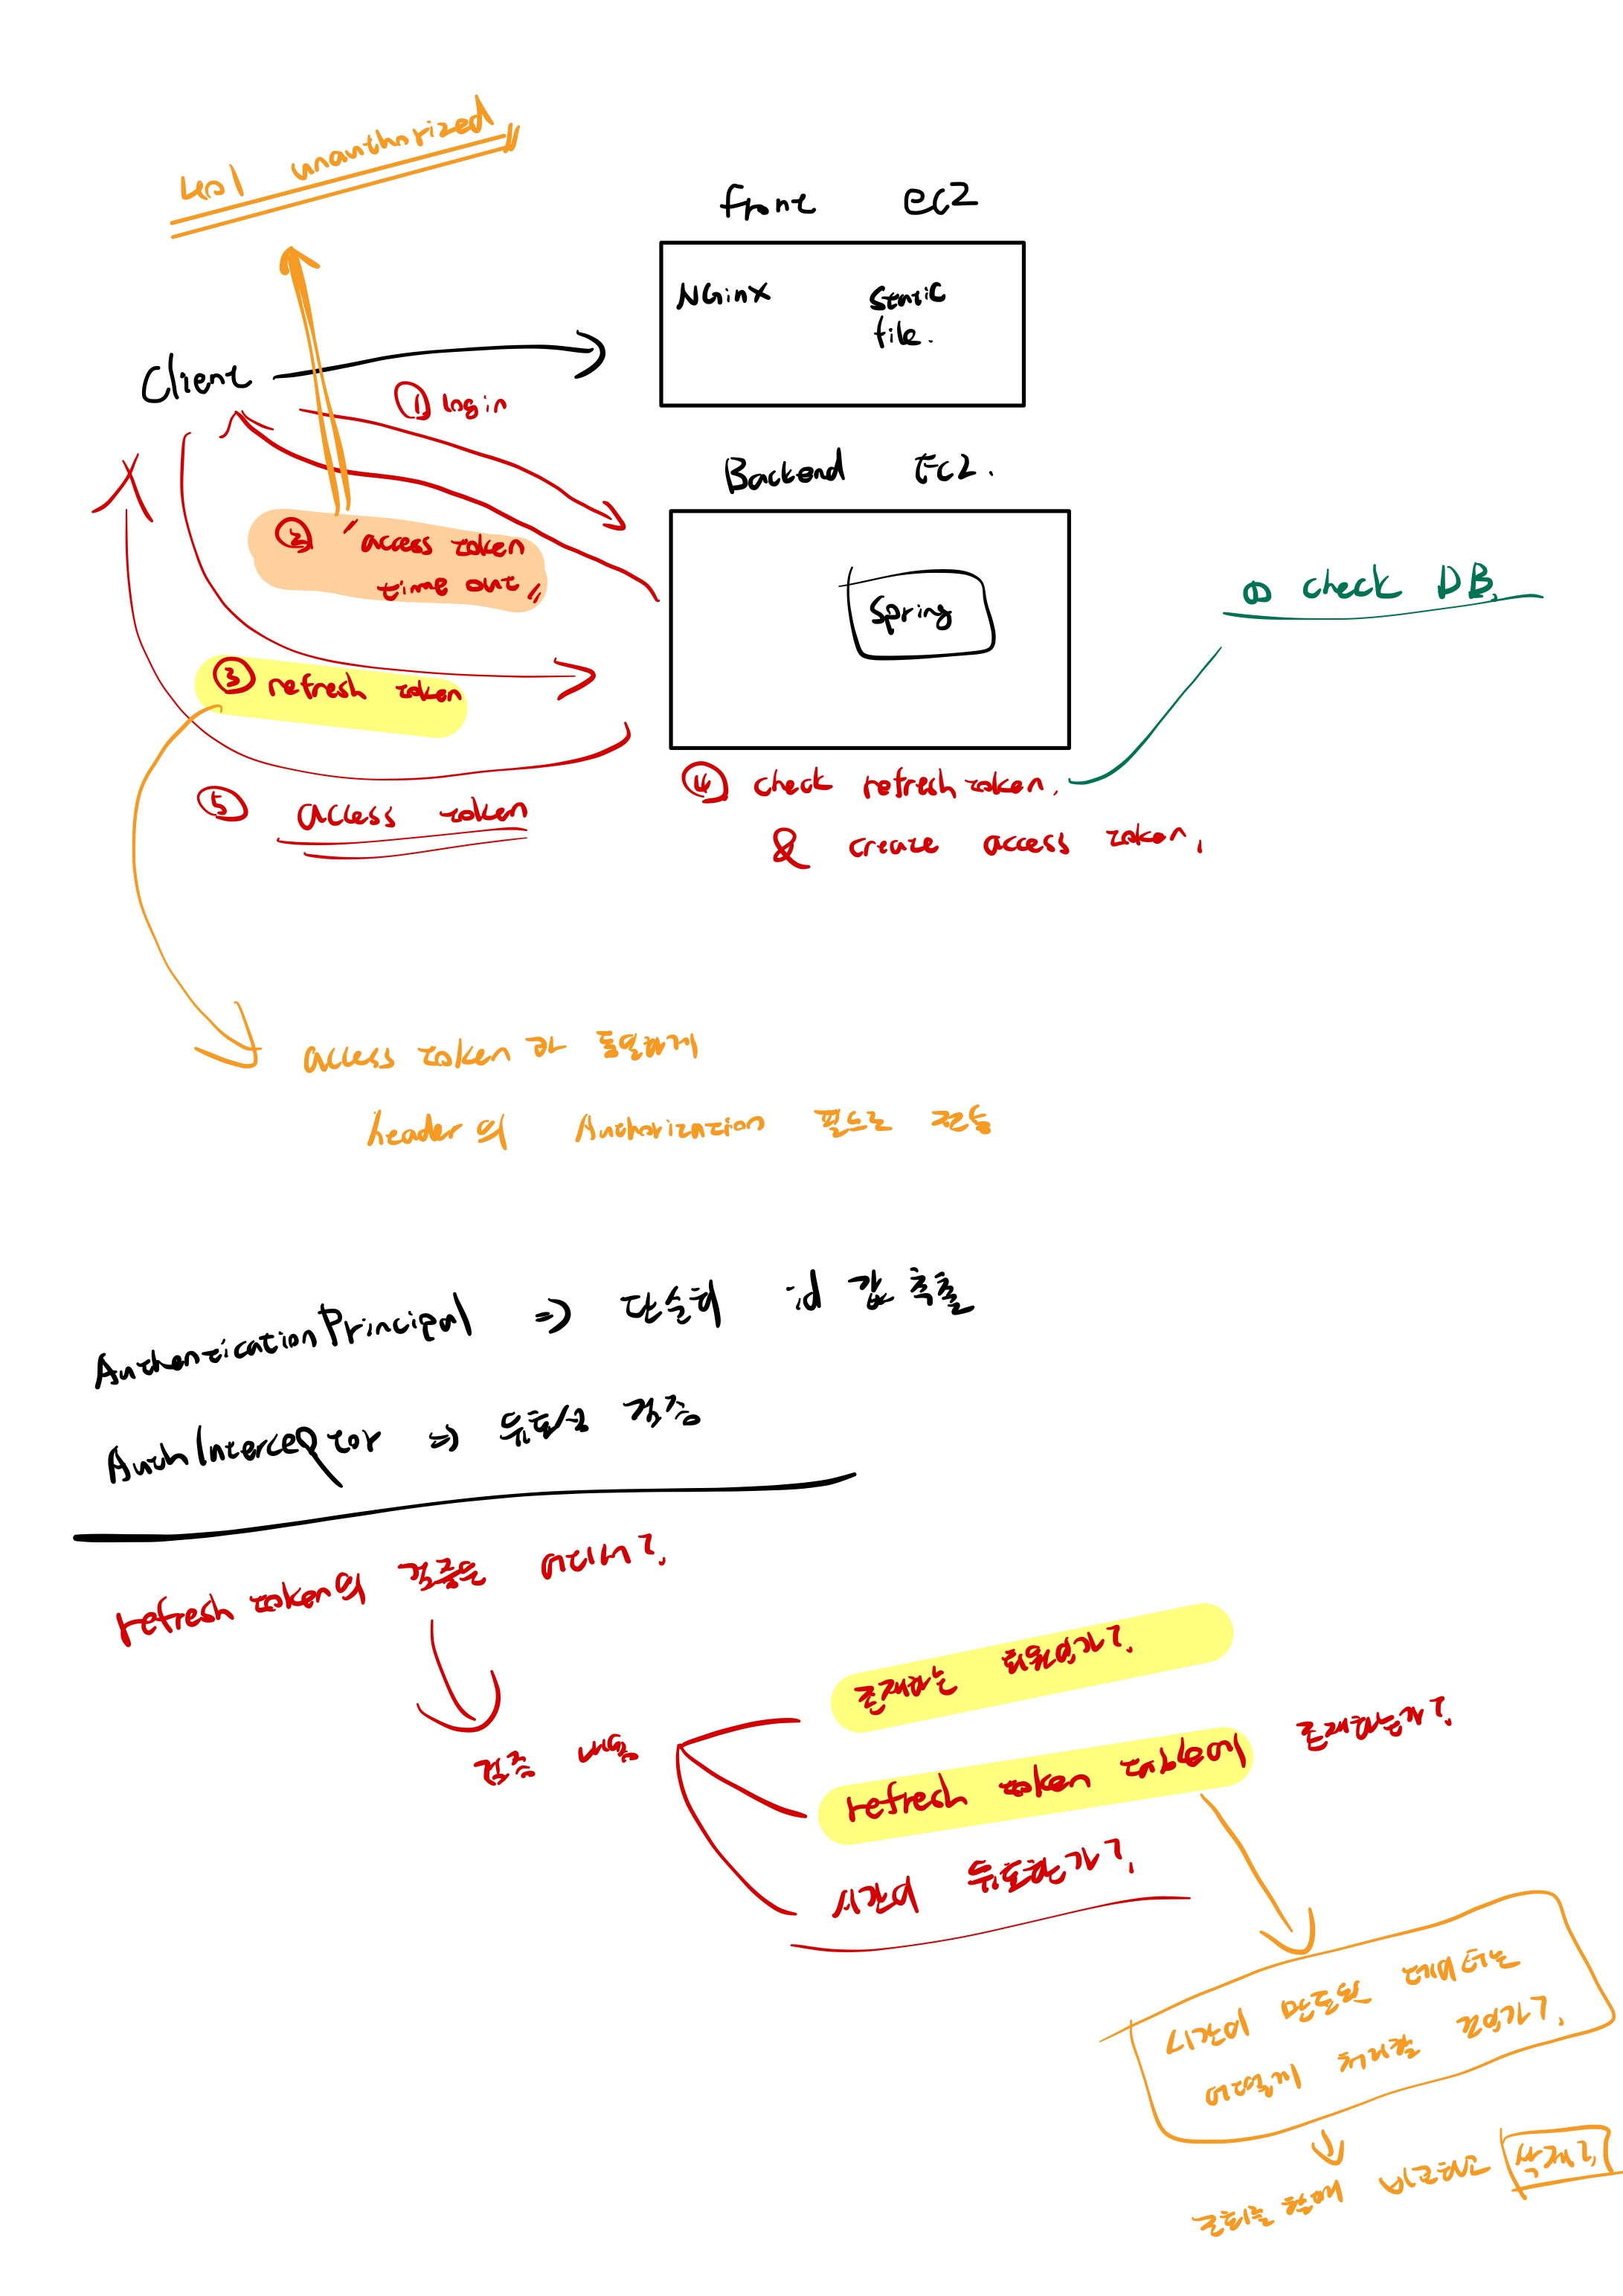 401 unauthorized
front ec2
NGinx
static
file.
Client
① login
Backend EC2.
② "access token
time out"
Spring
① check DB.
③ refresh token
④ check refresh token.
& create access token.
⑤ access token
access token 과 동일하게
header의 Authorization 필드로 전송
AuthenticationPrincipal ⇒ 단순히 id 값 추출
AuthInterceptor ⇒ 유효성 검증
refresh token의 검증은 어디서?
검증 내용
존재하는 회원인가?
refresh token table에 존재하는가?
시간이 유효한가?
시간이 만료된 데이터는
어떻게 처리할 것인가?
조회를 할때 비교하고 삭제?